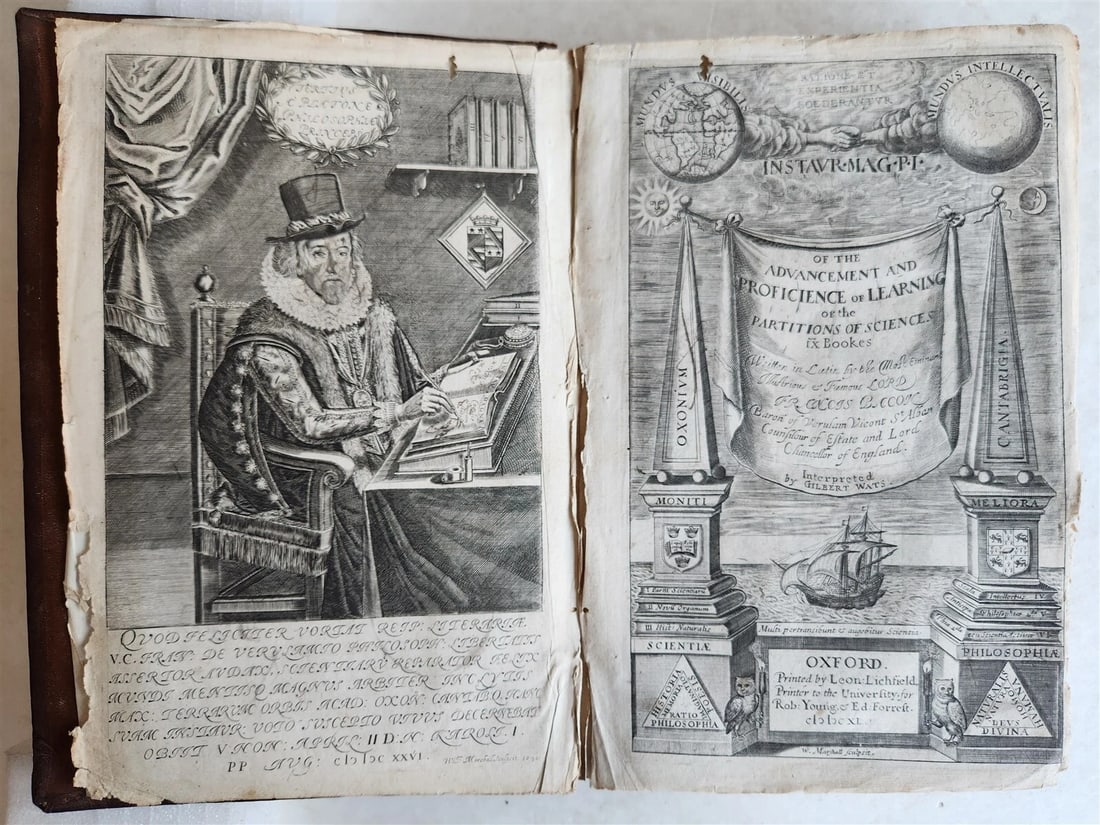 TERTIVS
PHILOSOPHIÆ
PRINCEPS
QVOD FELICITER VORTAT REIP. LITERARIÆ
V.C. FRAN: DE VERVLAMIO PHILOSOPH: LIBERTATIS
ASSERTOR AVDAX, SCIENTIARṼ REPARATOR FELIX
MVNDI MENTISQ MAGNVS ARBITER INCLYTIS
MAX: TERRARVM ORBIS ACAD: OXON: CANTAB: HANC
SVAM INSTAVR: VOTO SVSCEPTO VIVVS DECERNEBAT
OBIIT V NON: APRIL: II D.N. KAROLI. I.
PP AVG: cIↄIↄc XXVI.
MVNDVS VISIBILIS
RATIONE ET
EXPERIENTIA
FOEDERANTVR
MVNDVS INTELLECTVALIS
INSTAVR·MAG·P·I·
OF THE
ADVANCEMENT AND
PROFICIENCE OF LEARNING
or the
PARTITIONS OF SCIENCES
ix Bookes
Written in Latin by the Most Eminent
Illustrious & Famous LORD
FRANCIS BACON
Baron of Verulam Vicont St Alban
Counsilour of Estate and Lord
Chancellor of England.
Interpreted
by GILBERT WATS.
OXONIAM
CANTABRIGIA.
MONITI
MELIORA
I Partit Scientiarū
II Novū Organum
III Hist Naturalis
SCIENTIÆ
Multi pertransibunt & augebitur Scientia
PHILOSOPHIÆ
HISTORIA
POESIS
RATIO
PHILOSOPHIA
NATURALIS
HUMANA
DEVS
DIVINA
OXFORD.
Printed by Leon: Lichfield.
Printer to the University, for
Rob: Young, & Ed: Forrest.
cIↄIↄcXL.
W. Marshall sculpsit.